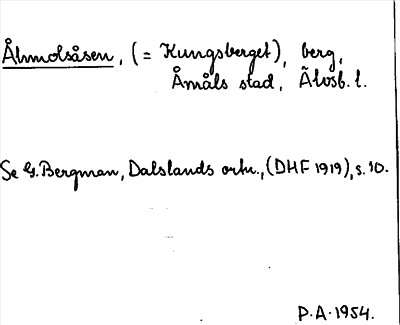 Åhmolsåsen, (= Kungsberget), berg,
Åmåls stad, Älvsb. l.
Se G. Bergman, Dalslands ortn., (DHF 1919), s. 10.
P.A. 1954.